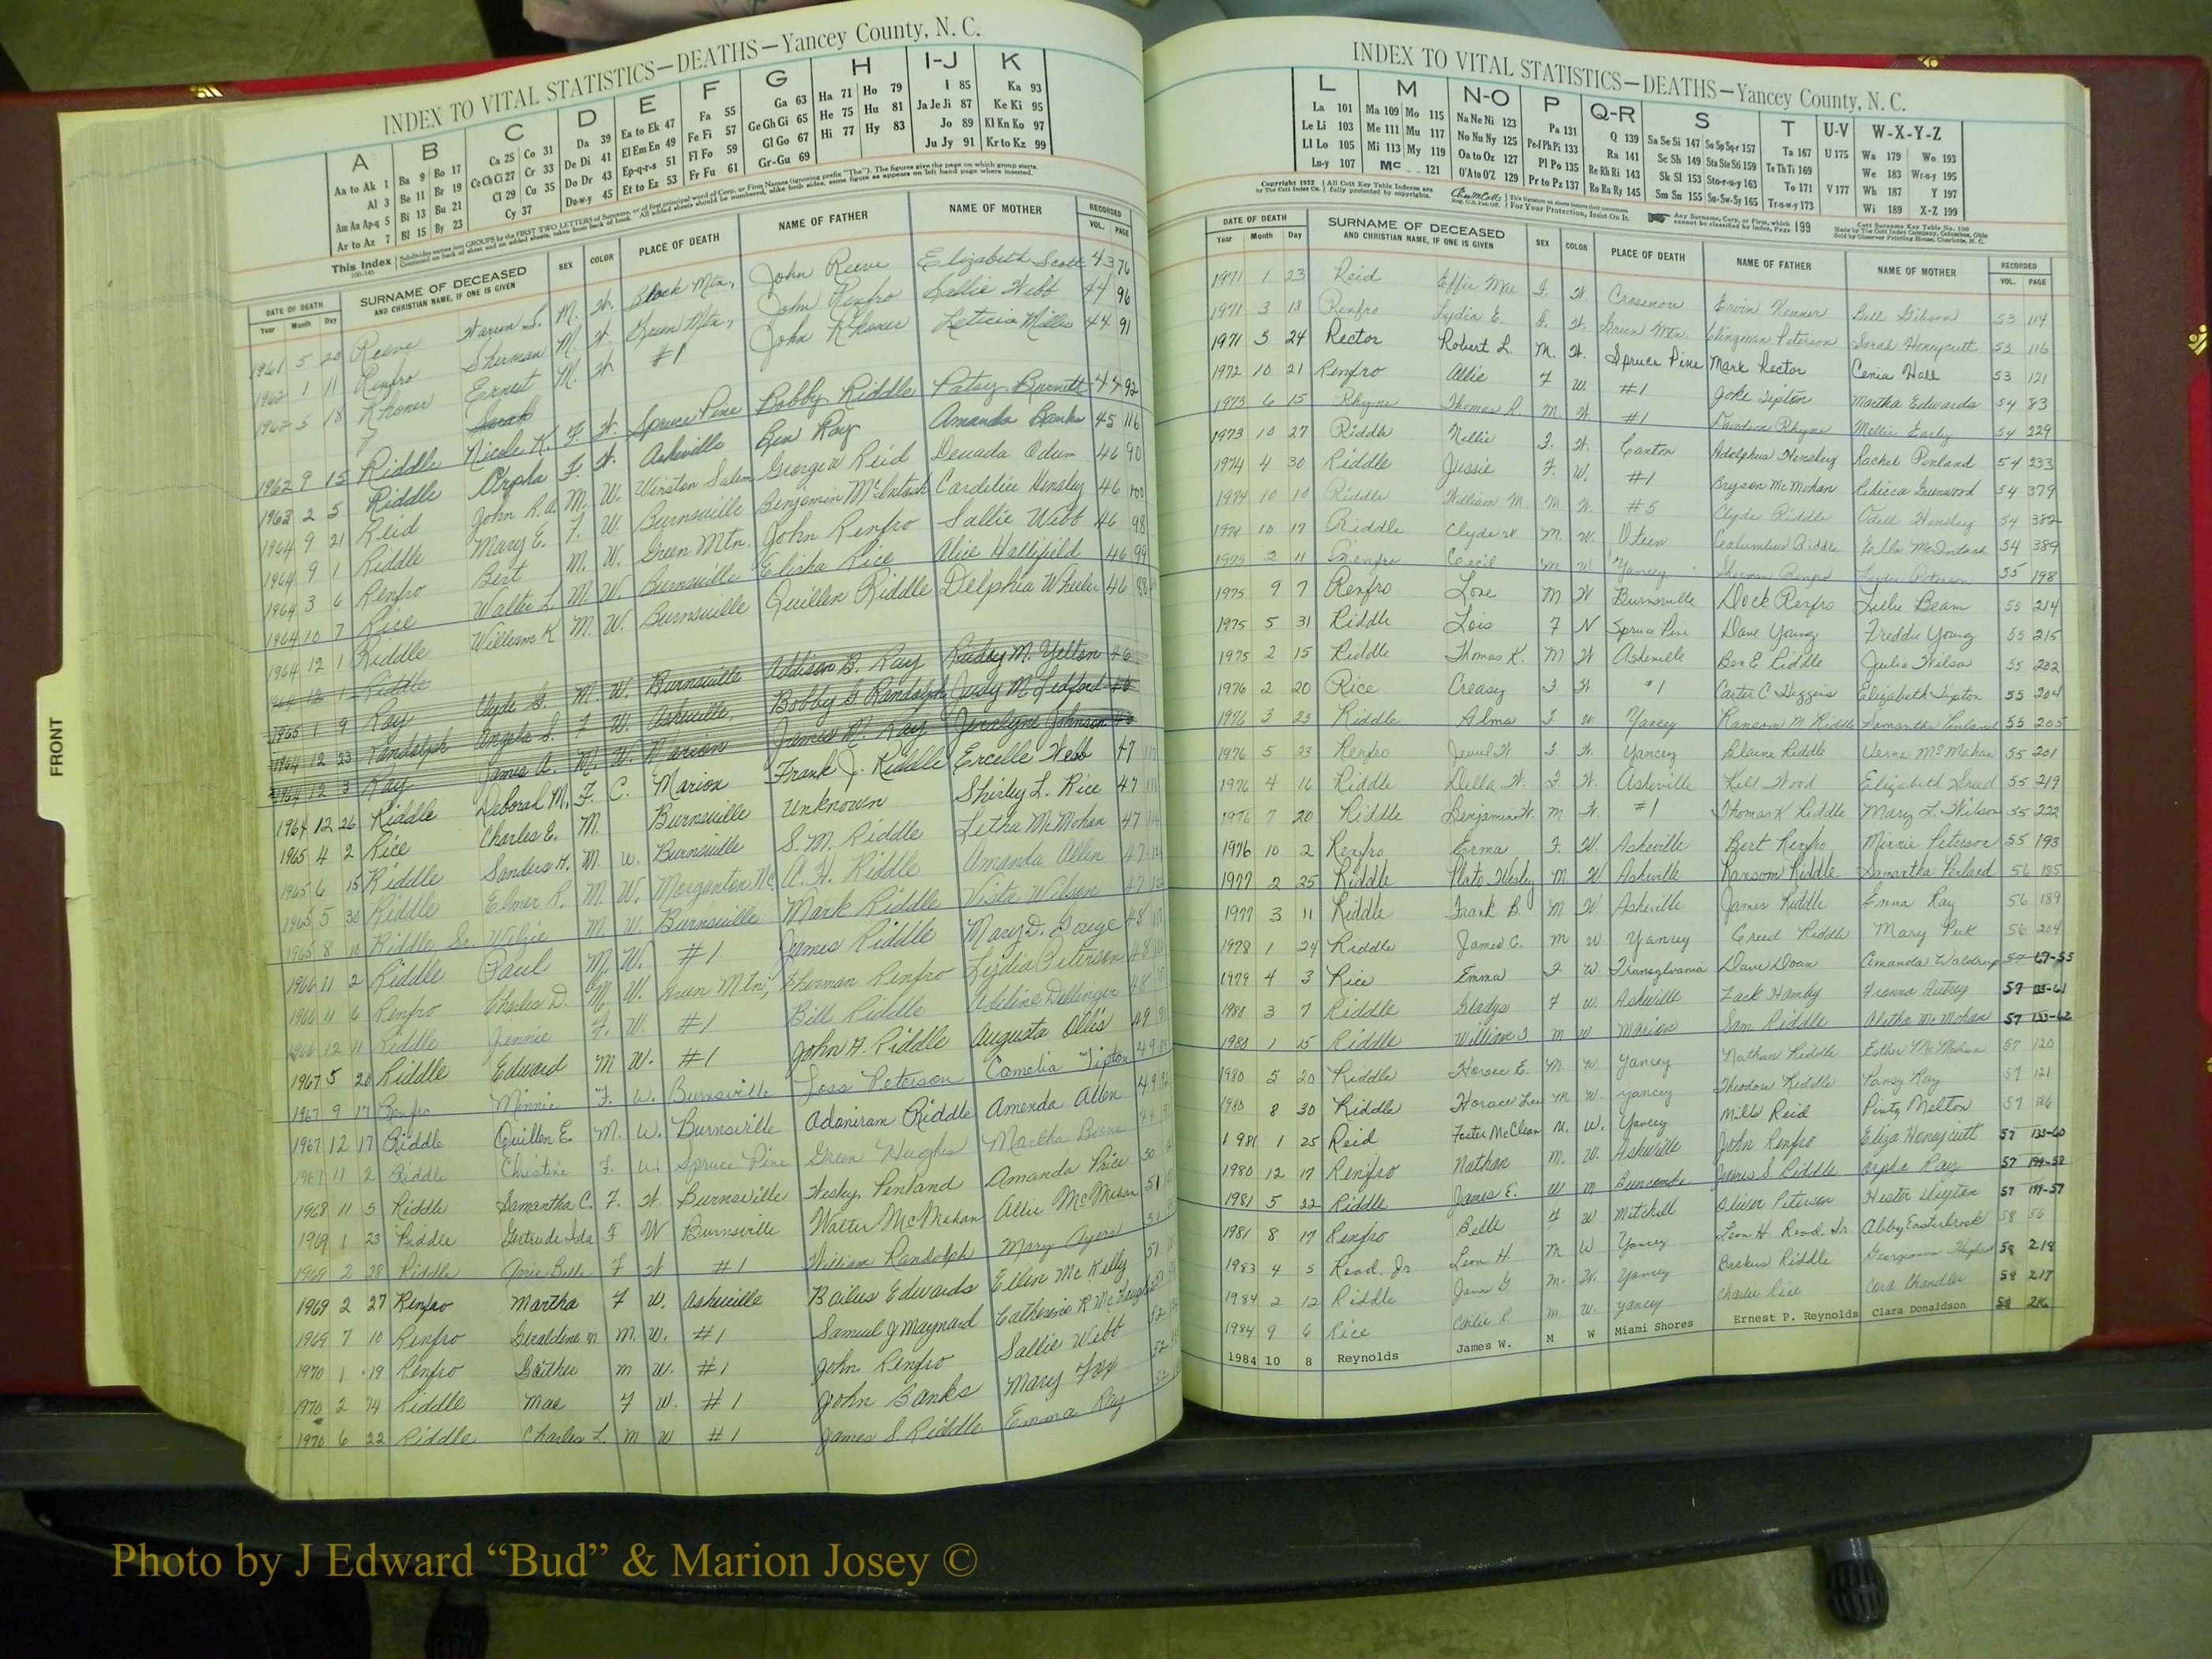 INDEX TO VITAL STATISTICS—DEATHS—Yancey County, N. C.
A B C D E F G H I-J K
Aa to Ak 1 Ba 9 Bo 17 Ca 25 Co 31 Da 39 Ea to Ek 47 Fa 55 Ga 63 Ha 71 Ho 79 I 85 Ka 93
Al 3 Be 11 Br 19 Ce Ch Ci 27 Cr 33 De Di 41 El Em En 49 Fe Fi 57 Ge Gh Gi 65 He 75 Hu 81 Ja Je Ji 87 Ke Ki 95
Am An Ap-q 5 Bi 13 Bu 21 Cl 29 Cu 35 Do Dr 43 Ep-q-r-s 51 Fl Fo 59 Gl Go 67 Hi 77 Hy 83 Jo 89 Kl Kn Ko 97
Ar to Az 7 Bl 15 By 23 Cy 37 Du-w-y 45 Et to Ez 53 Fr Fu 61 Gr-Gu 69 Ju Jy 91 Kr to Kz 99
This Index
DATE OF DEATH SURNAME OF DECEASED SEX COLOR PLACE OF DEATH NAME OF FATHER NAME OF MOTHER RECORDED
Year Month Day AND CHRISTIAN NAME, IF ONE IS GIVEN VOL. PAGE
1961 5 20 Reeve Warren S. M. W. Black Mtn, John Reeve Elizabeth Scott 43 76
1962 1 11 Renfro Sherman M. W. Green Mtn, John Renfro Sallie Webb 44 96
1962 5 18 Rhoner Ernest M. W. #1 John Rhoner Leticia Miller 44 91
Sarah
1962 9 15 Riddle Nicole K. F. W. Spruce Pine Bobby Riddle Patsy Burnett 44 92
1963 2 5 Riddle Orpha F. W. Asheville Ben Ray Amanda Banks 45 116
1964 9 21 Reid John R.A. M. W. Winston Salem George W Reid Devada Odum 46 90
1964 9 1 Riddle Mary E. F. W. Burnsville Benjamin McIntosh Cardelia Hensley 46 100
1964 3 6 Renfro Bert M. W. Green Mtn. John Renfro Sallie Webb 46 98
1964 10 7 Rice Walter L. M. W. Burnsville Elisha Rice Alice Hallifield 46 99
1964 12 1 Riddle William K M. W. Burnsville Quillen Riddle Delphia Wheeler 46 88
1964 12 1 Riddle
1965 1 9 Ray Clyde G. M. W. Burnsville Addison B. Ray M. Yelton 46
1964 12 23 Randolph Angela S. F W. Asheville, Bobby G. Randolph Judy M. Ledford 46
1964 12 3 Ray James A. M. W. Marion James M. Ray Jeralyne Johnson 46
1964 12 26 Riddle Deborah M. F. C. Marion Frank J. Riddle Ercelle Webb 47
1965 4 2 Rice Charles E. M. Burnsville Unknown Shirley L. Rice 47
1965 6 15 Riddle Sanders H. M. W. Burnsville S. M. Riddle Letha McMahan 47
1965 5 30 Riddle Elmer R. M. W. Morganton NC A. H. Riddle Amanda Allen 47
1965 8 10 Riddle, Sr. M W. Burnsville Mark Riddle Vista Wilson 47
1966 11 2 Riddle Paul M. W. #1 James Riddle Mary D. Gouge 48
1966 11 6 Renfro Charles D. M. W. Green Mtn, Sherman Renfro Lydia Peterson 48
1966 12 11 Riddle Jennie F. W. #1 Bill Riddle Adeline Dellinger 48
1967 5 20 Riddle Edward M W. #1 John H. Riddle Augusta Ollis 49
1967 9 17 Renfro Minnie F. W. Burnsville Joss Peterson Camelia Tipton 49
1967 12 17 Riddle Quillen E. M. W. Burnsville Adoniram Riddle Amenda Allen 49
1967 11 2 Riddle Christine F. W. Spruce Pine Green Hughes Martha Boone 49
1968 11 5 Riddle Samantha C. F. W. Burnsville Wesley Penland Amanda Price 50
1969 1 23 Riddle Gertrude Ida F W Burnsville Walter McMahan Allie McMahan 51
1969 2 28 Riddle Belle F W #1 William Randolph Mary Ayers 51
1969 2 27 Renfro Martha F W. Asheville Bailus Edwards Eilen McKelly 51
1969 7 10 Renfro Geraldine M. M. W. #1 Samuel J Maynard Catherine R
1970 1 19 Renfro Gaither M W. #1 John Renfro Sallie Webb 52
1970 2 14 Riddle Mae F W. #1 John Banks Mary Fox 52
1970 6 22 Riddle Charles L. M W #1 James S. Riddle Emma Ray
FRONT
INDEX TO VITAL STATISTICS—DEATHS—Yancey County, N. C.
L M N-O P Q-R S T U-V W-X-Y-Z
La 101 Ma 109 Mo 115 Na Ne Ni 123 Pa 131 Q 139 Sa Se Si 147 So Sp Sq-r 157 Ta 167 U 175 Wa 179 Wo 193
Le Li 103 Me 111 Mu 117 No Nu Ny 125 Pe-f Ph Pi 133 Ra 141 Sc Sh 149 Sta Ste Sti 159 Te Th Ti 169 We 183 Wr-u-y 195
Ll Lo 105 Mi 113 My 119 Oa to Oz 127 Pl Po 135 Re Rh Ri 143 Sk Sl 153 Sto-r-u-y 163 To 171 V 177 Wh 187 Y 197
Lu-y 107 Mc 121 O'A to O'Z 129 Pr to Pz 137 Ro Ru Ry 145 Sm Sn 155 Su-Sw-Sy 165 Tr-u-w-y 173 Wi 189 X-Z 199
Copyright 1932 All Cott Key Table Indexes are fully protected by copyrights. For Your Protection, Insist On It. Any Surname, Corp. or Firm, which cannot be classified by Index, Page 199
DATE OF DEATH SURNAME OF DECEASED SEX COLOR PLACE OF DEATH NAME OF FATHER NAME OF MOTHER RECORDED
Year Month Day AND CHRISTIAN NAME, IF ONE IS GIVEN VOL. PAGE
1971 1 23 Reid Effie Mae F. W. Crossnore Ervin Bell Gibson 53 114
1971 3 18 Renfro Lydia E. F. W. Green Mtn. Clingman Peterson Sarah Honeycutt 53 116
1971 5 24 Rector Robert L. M. W. Spruce Pine Mark Rector Cenia Hall 53 121
1972 10 21 Renfro Allie F W. #1 Joke Tipton Martha Edwards 54 83
1973 6 15 Rhyne Thomas R. M W. #1 Davidson Rhyne Mollie Early 54 229
1973 10 27 Riddle Nellie F. W. Canton Adolphus Hensley Rachel Penland 54 233
1974 4 30 Riddle Jessie F. W. #1 Bryson McMahan Rebecca Greenwood 54 379
1974 10 10 Riddle William M. M W. #5 Clyde Riddle Odell Hensley 54 382
1974 10 17 Riddle Clyde W. M. W. Oteen Columbus Riddle Ella McIntosh 54 389
1975 2 11 Renfro Cecil M W Yancey Sherman Renfro Lydia Peterson 55 198
1975 9 7 Renfro Lone M W Burnsville Dock Renfro Lillie Beam 55 214
1975 5 31 Riddle Lois F N Spruce Pine Dave Young Freddie Young 55 215
1975 2 15 Riddle Thomas K. M W Asheville Ben E Riddle Julia Wilson 55 202
1976 2 20 Rice Creasy F. W. #1 Carter C Higgins Elizabeth Tipton 55 204
1976 3 23 Riddle Alma F W. Yancey Ransom M Riddle Samantha Penland 55 205
1976 5 23 Renfro Jewel W. F. W. Yancey Blaine Riddle Verna McMahan 55 201
1976 4 16 Riddle Della W. F. W. Asheville Kell Wood Elizabeth Sneed 55 219
1976 7 20 Riddle Benjamin W. M W. #1 Thomas K Riddle Mary L. Wilson 55 222
1976 10 2 Renfro Erma F. W. Asheville Bert Renfro Minnie Peterson 55 193
1977 2 25 Riddle Plato Wesley M W Asheville Ransom Riddle Samantha Penland 56 185
1977 3 11 Riddle Frank B. M W. Asheville James Riddle Emma Ray 56 189
1978 1 24 Riddle James C. M W Yancey Creed Riddle Mary Peek 56 204
1979 4 3 Rice Emma F. W. Transylvania Dave Doan Amanda Waldrup 57 -55
1980 3 7 Riddle Gladys F W. Asheville Zack Handy Autrey 57 -61
1980 1 15 Riddle William J M W Marion Sam Riddle Aletha McMahan 57 -62
1980 5 20 Riddle Horace E. M. W Yancey Nathan Riddle Esther McMahan 57 120
1980 8 30 Riddle Horace Lee M W. Yancey Theodore Riddle Pansy Ray 57 121
1981 1 25 Reid Foster McClean M. W. Yancey Mills Reid Pinty Melton 57 186
1980 12 17 Renfro Nathan M. W. Asheville John Renfro Eliza Honeycutt 57 -60
1981 5 22 Riddle James E. W M Buncombe James S Riddle Orpha Ray 57 -58
1981 8 17 Renfro Belle F W Mitchell Oliver Peterson Hester Deyton 57 -57
1983 4 5 Read, Jr. Leon H. M W Yancey Leon H. Read, Sr. Abby Easterbrook 58 56
1984 2 12 Riddle James G. M. W. Yancey Backus Riddle Georgianna Hughes 58 218
1984 9 6 Rice M. W. Yancey Charlie Rice Cora Chandler 58 217
1984 10 8 Reynolds James W. M W Miami Shores Ernest P. Reynolds Clara Donaldson 58 216
Photo by J Edward “Bud” & Marion Josey ©